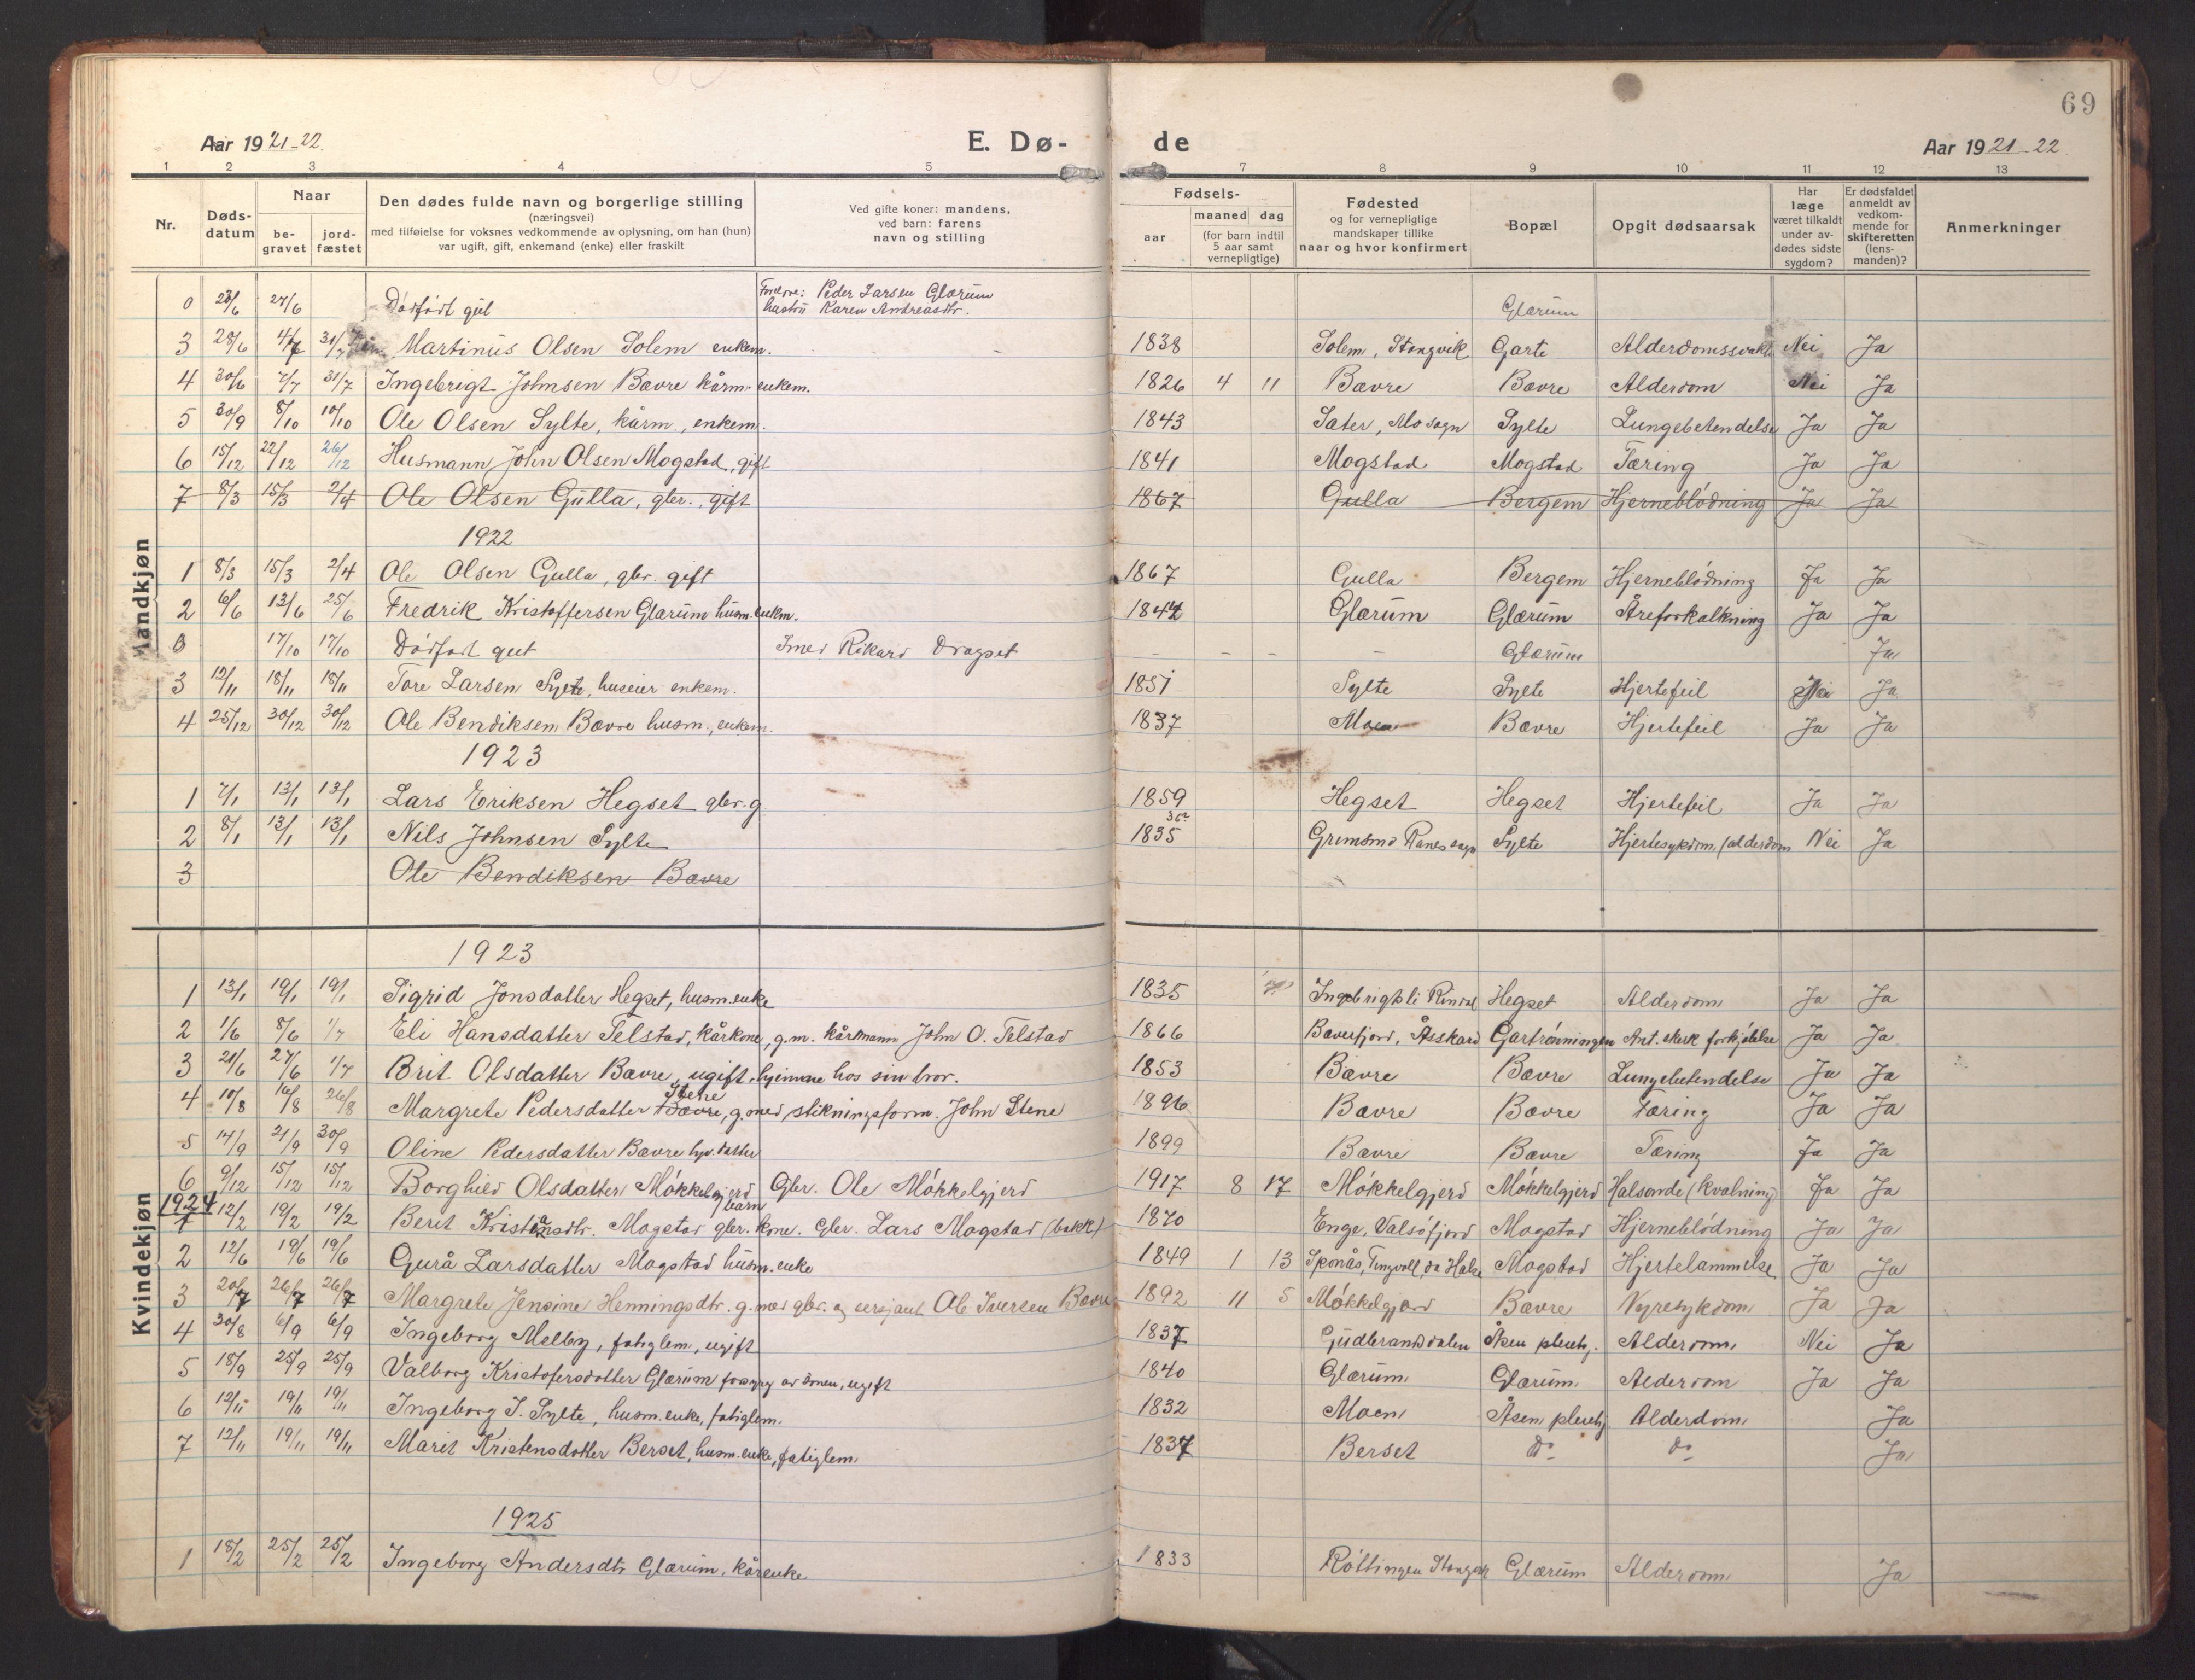 69
Aar 1921-22. E. Dø- de Aar 1921-22
1 2 3 4 5 7 8 9 10 11 12 13
Nr. Døds-datum Naar be-gravet jord-fæstet Den dødes fulde navn og borgerlige stilling (næringsvei) med tilføielse for voksnes vedkommende av oplysning, om han (hun) var ugift, gift, enkemand (enke) eller fraskilt Ved gifte koner: mandens, ved barn: farens navn og stilling Fødsels- aar maaned dag (for barn indtil 5 aar samt vernepligtige) Fødested og for vernepligtige mandskaper tillike naar og hvor konfirmert Bopæl Opgit dødsaarsak Har læge været tilkaldt under av-dødes sidste sygdom? Er dødsfaldet anmeldt av vedkom-mende for skifteretten (lens-manden)? Anmerkninger
Mandkjøn
0 23/6 27/6 Dødfødt gut Foreldre: Peder Larsen Glærum hustru Karen Andreasdtr. Glærum
3 28/6 4/7 31/7 Martinus Olsen Solem enkem. 1838 Solem, Stangvik Garte Alderdomssvakh. Nei Ja
4 30/6 7/7 31/7 Ingebrigt Johnsen Bævre kårm. enkem. 1826 4 11 Bævre Bævre Alderdom Nei Ja
5 30/9 8/10 10/10 Ole Olsen Sylte, kårm., enkem. 1843 Sæter, Mo sogn Sylte Lungebetendelse Ja Ja
6 15/12 22/12 26/12 Husmann John Olsen Mogstad, gift 1841 Mogstad Mogstad Tæring Ja Ja
7 8/3 15/3 2/4 Ole Olsen Gulla, gbr., gift 1867 Gulla Bergem Hjerneblødning Ja Ja
1922
1 8/3 15/3 2/4 Ole Olsen Gulla, gbr. gift 1867 Gulla Bergem Hjerneblødning Ja Ja
2 6/6 13/6 25/6 Fredrik Kristoffersen Glærum husm. enkm. 1844 Glærum Glærum Åreforkalkning Ja Ja
0 17/10 17/10 Dødfødt gut Rikard Dragset - - - - Glærum Ja
3 12/11 18/11 18/11 Tore Larsen Sylte, huseier enkem. 1851 Sylte Sylte Hjertefeil Nei Ja
4 25/12 30/12 30/12 Ole Bendiksen Bævre husm., enkem. 1837 Moen Bævre Hjertefeil Ja Ja
1923
1 7/1 13/1 13/1 Lars Eriksen Hegset gbr. g. 1859 Hegset Hegset Hjertefeil Ja Ja
2 8/1 13/1 13/1 Nils Johnsen Sylte 1835 Grimsmo Ranes sogn Sylte Hjertesykdom (alderdom Nei Ja
3 Ole Bendiksen Bævre
Kvindekjøn
1923
1 13/1 19/1 19/1 Sigrid Jonsdatter Hegset, husm. enke 1835 Ingebrigtsli Rindal Hegset Alderdom Ja Ja
2 1/6 8/6 1/7 Eli Hansdatter Telstad, kårkone, g.m. kårmann John O. Telstad 1866 Bæverfjord, Åsskard Gartrønningen Ant. sterk forkjølelse Ja Ja
3 21/6 27/6 1/7 Brit Olsdatter Bævre, ugift, hjemme hos sin bror. 1853 Bævre Bævre Lungebetendelse Ja Ja
4 10/8 16/8 26/8 Margrete Pedersdatter Bævre, Stene g. med stikningsform. John Stene 1896 Bævre Bævre Tæring Ja Ja
5 14/9 21/9 30/9 Oline Pedersdatter Bævre datter 1899 Bævre Bævre Tæring Ja Ja
6 9/12 15/12 15/12 Borghild Olsdatter Møkkelgjerd barn Gbr. Ole Møkkelgjerd 1917 8 17 Møkkelgjerd Møkkelgjerd Halsonde (kvalning) Ja Ja
1924
1 12/2 19/2 19/2 Berit Kristiansdtr. Mogstad gbr. kone. Gbr. Lars Mogstad (bakk) 1870 Enge, Valsøfjord Mogstad Hjerneblødning Ja Ja
2 12/6 19/6 19/6 Gurå Larsdatter Mogstad husm. enke 1849 1 13 Sponås, Tingvoll, da Halse Mogstad Hjertelammelse Ja Ja
3 20/7 26/7 26/7 Margrete Jensine Henningsdtr. g. med gbr. og sersjant Ole Iversen Bævre 1892 11 5 Møkkelgjerd Bævre Nyresykdom Ja Ja
4 30/8 6/9 6/9 Ingeborg Melby, fatiglem, ugift 1837 Gudbrandsdalen Åsen pleiehj. Alderdom Nei Ja
5 18/9 25/9 25/9 Valborg Kristofersdatter Glærum forsørg. av sønen, ugift 1840 Glærum Glærum Alderdom Ja Ja
6 12/11 19/11 19/11 Ingeborg J. Sylte, husm. enke, fatiglem 1832 Moen Åsen pleiehj. Alderdom Ja
7 12/11 19/11 19/11 Marit Kristensdatter Berset, husm. enke, fatiglem 1837 Berset do do Ja
1925
1 18/2 25/2 25/2 Ingeborg Andersdtr Glærum, kårenke 1833 Røttingen Stangvik Glærum Alderdom Ja